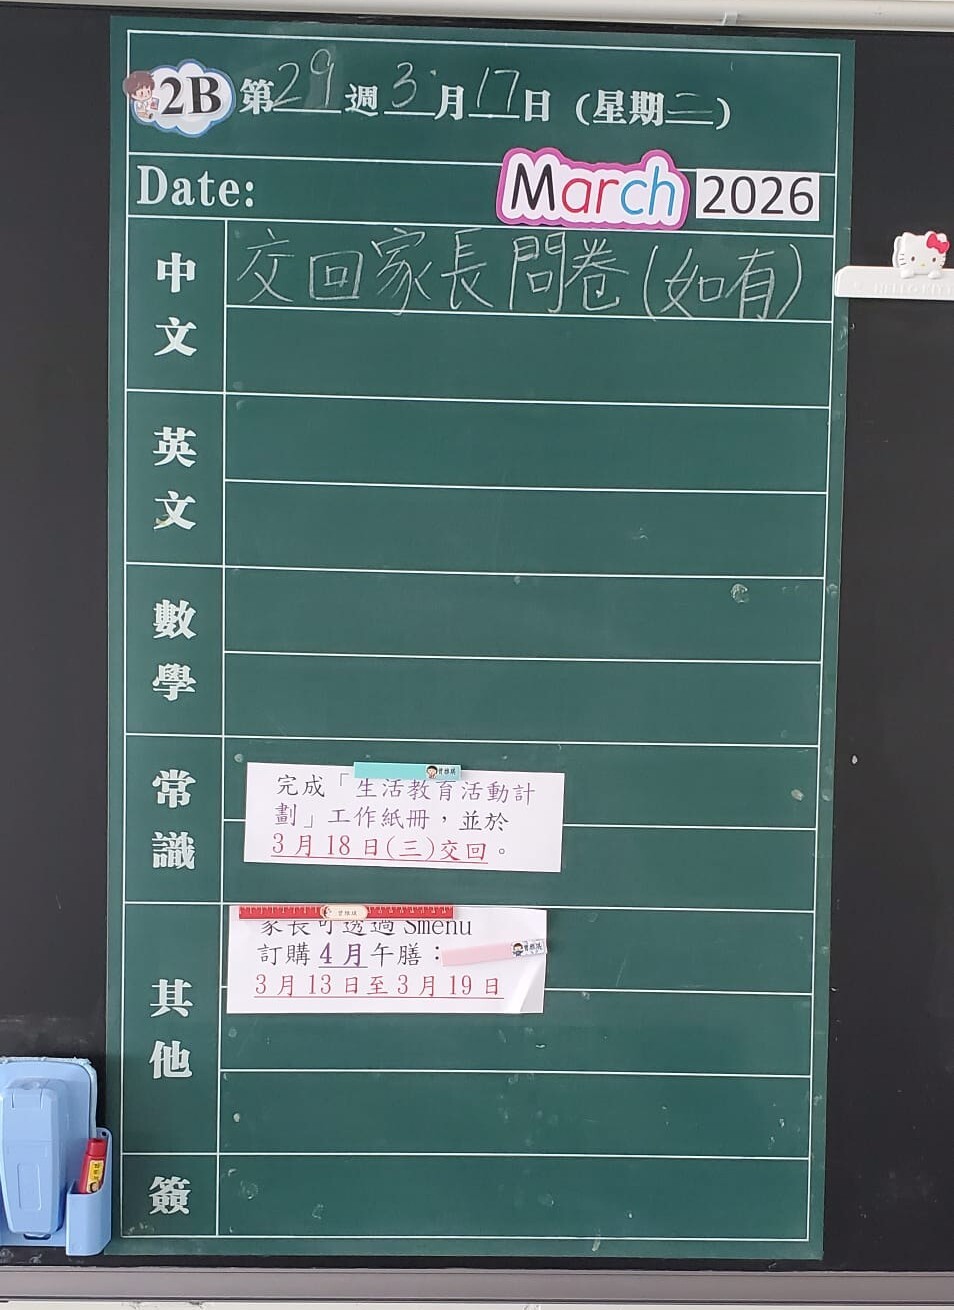 2B 第29週3月17日 (星期二)
Date: March 2026
中文
交回家長問卷(如有)
英文
數學
常識
完成「生活教育活動計
劃」工作紙冊，並於
3月18日(三)交回。
其他
家長可透過 Smenu
訂購4月午膳：
3月13日至3月19日
簽
HELLO KITTY